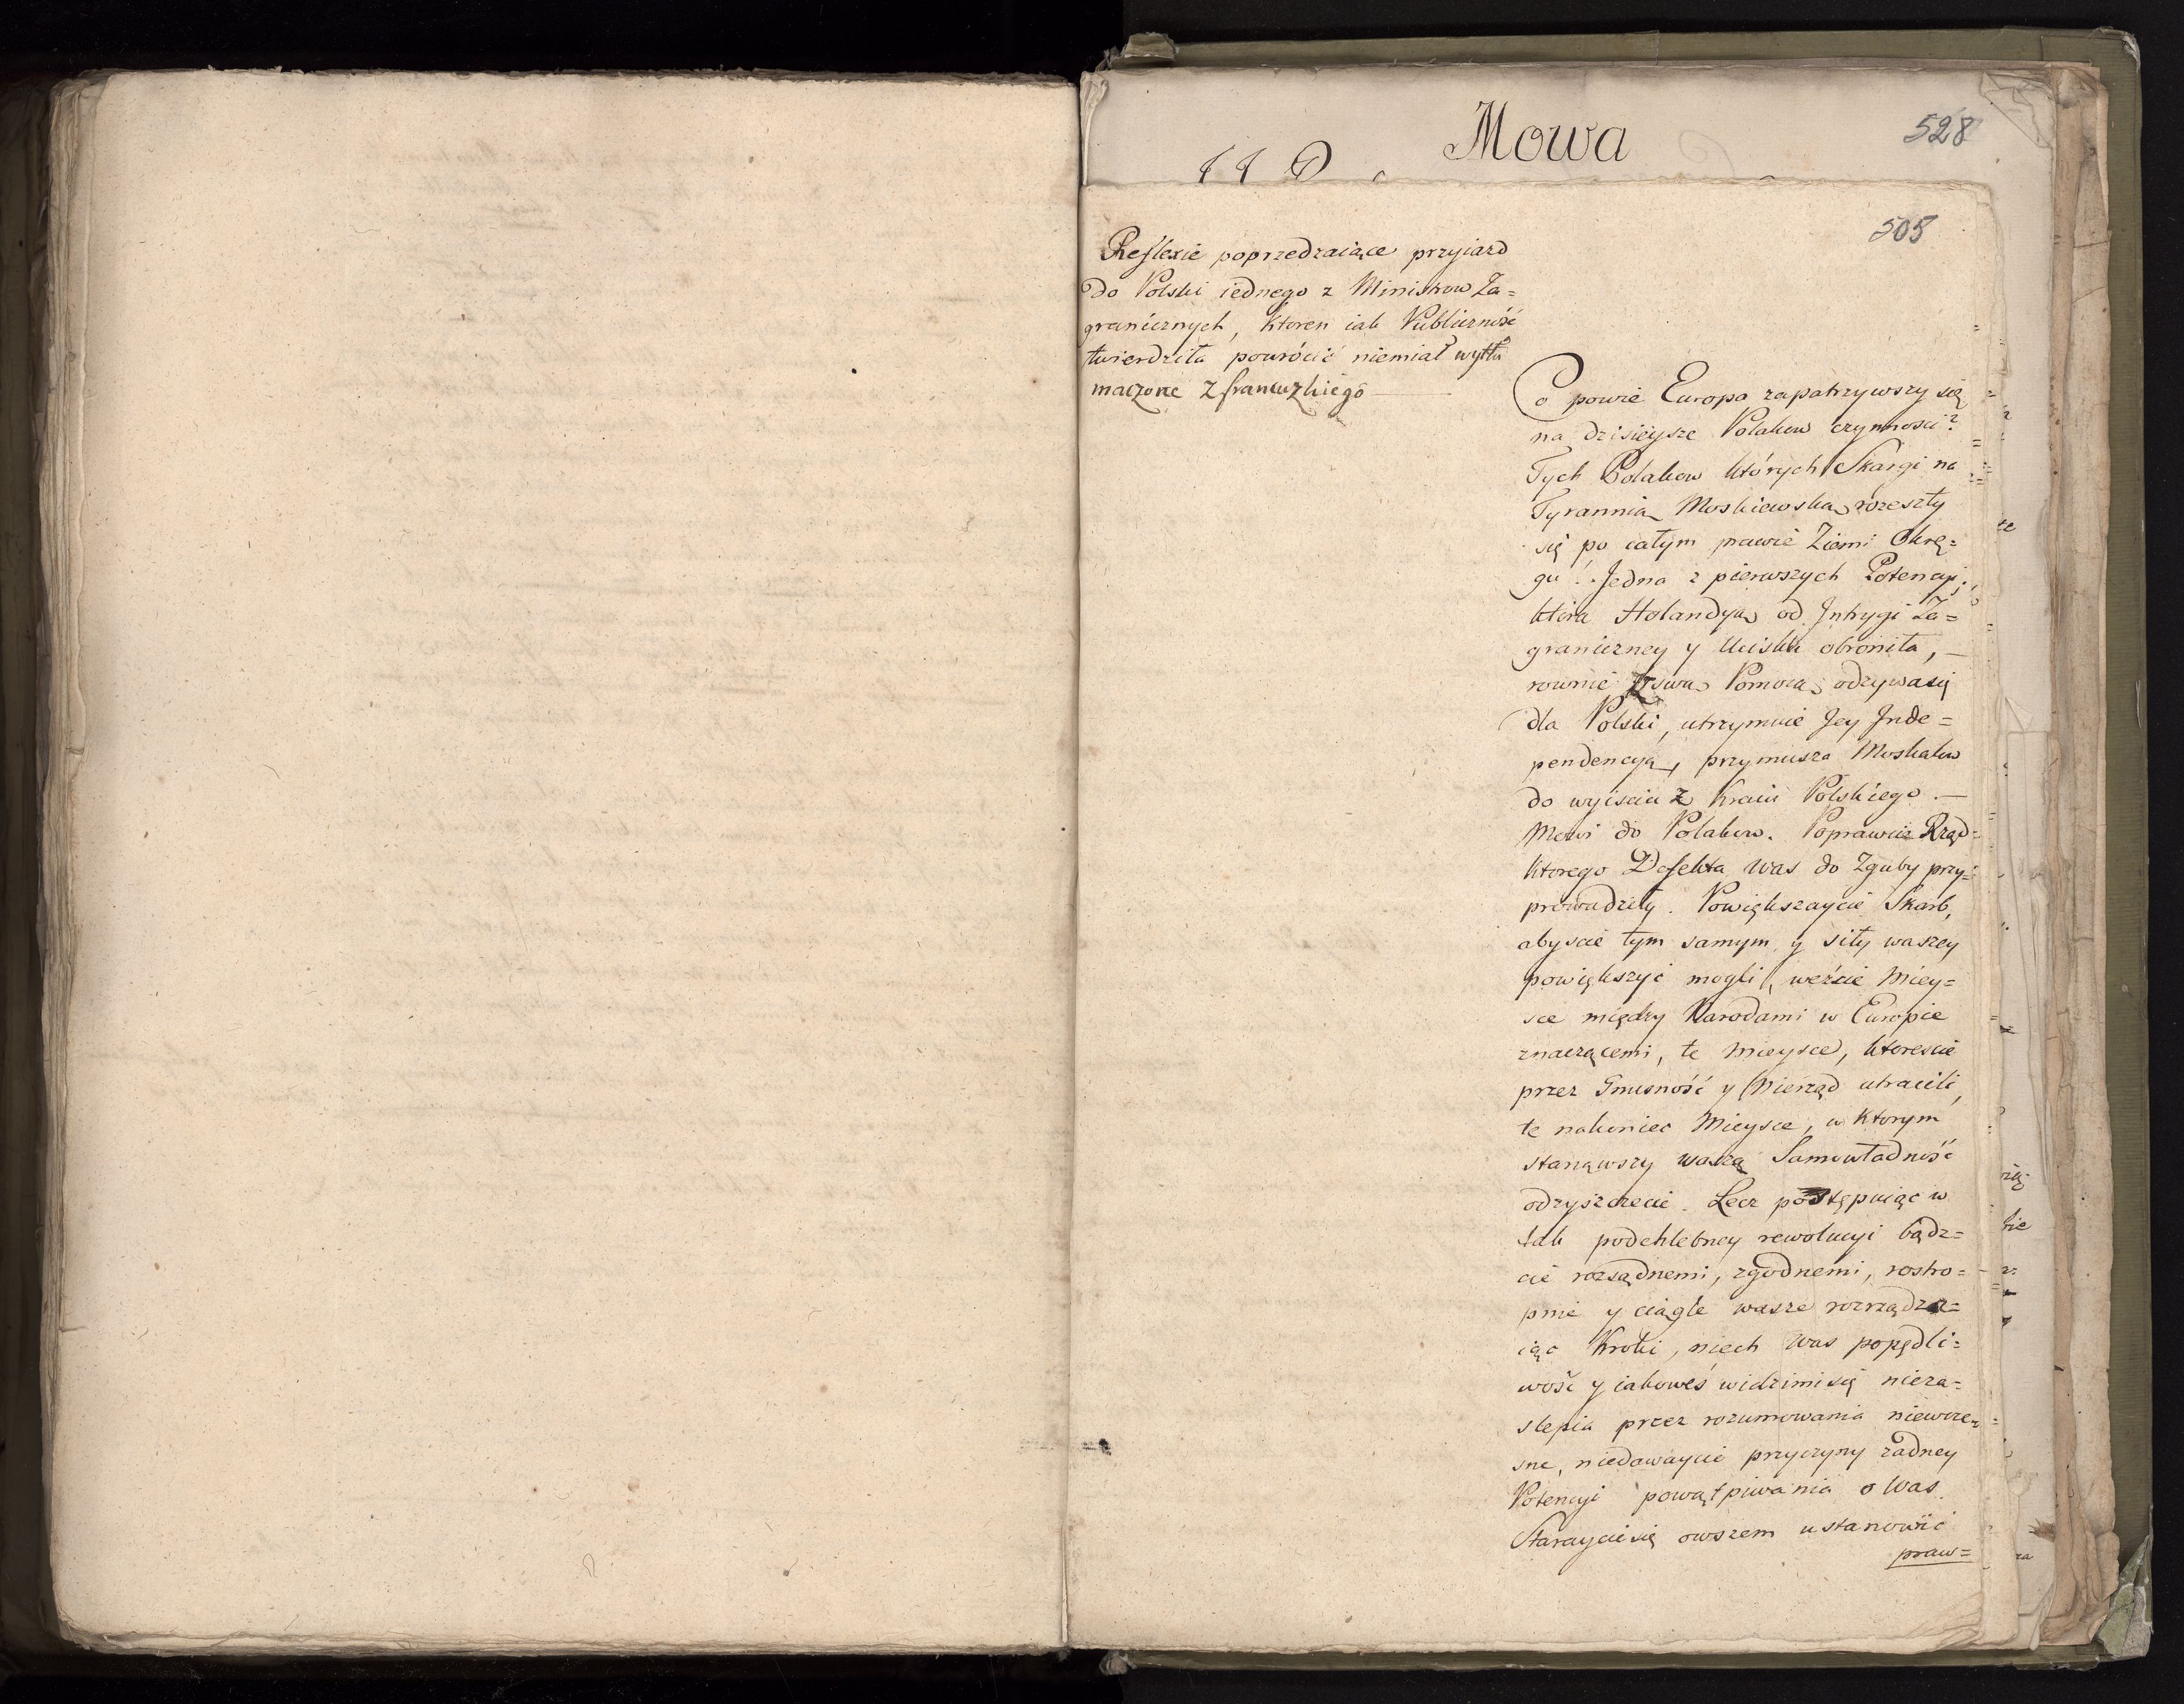 Mowa
528
505
Reflexie poprzedzaiące przyiazd
do Polski iednego z Ministrow Za=
granicznych, ktoren iak Publiczność
twierdziła powrócić niemiał wytłu
maczone z francuzkiego
Co powie Europa zapatrzywszy się
na dzisieysze Polakow czynnosci?
Tych Polakow których Skargi na
Tyrannią Moskiewską rozeszły
się po całym prawie Ziemi Okrę=
gu! Jedna z pierwszych Potencyi,
ktora Holandyą od Intrygi Za=
graniczney y Ucisku obroniła,
rownie z swą Pomocą odzywa się
dla Polski, utrzymuie Jey Inde=
pendencyą, przymusza Moskalow
do wyiscia z Kraiu Polskiego.
Mowi do Polakow. Poprawcie Rząd
ktorego Defekta was do Zguby przy=
prowadziły. Powiększaycie Skarb,
abyscie tym samym y siły waszey
powiększyć mogli, weźcie Miey=
sce między Narodami w Europie
znaczącemi, te Mieysce, ktorescie
przez Gnusność y Nierząd utracili,
te nakoniec Mieysce, w ktorym
stanąwszy waszą Samowładność
odzyszczecie. Lecz postępuiąc w
tak podchlebney rewolucyi bądz=
cie rozsądnemi, zgodnemi, rostro=
pnie y ciągle wasze rozrządza=
iąc Kroki, niech was popędli=
wość y iakoweś widzimisię nieza=
slepia przez rozumowania niewcze=
sne, niedawaycie przyczyny żadney
Potencyi powątpiwania o Was.
Staraycie się owszem ustanowić
praw=